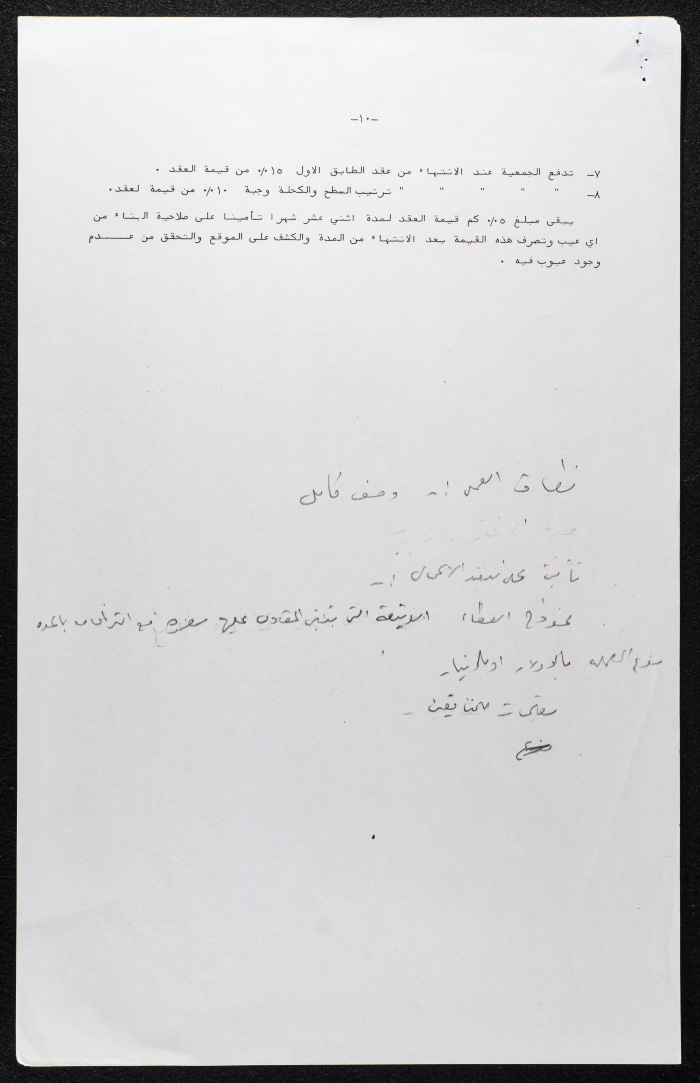 -١٠-
٧- تدفع الجمعية عند الانتهاء من عقد الطابق الاول ١٥٪ من قيمة العقد .
٨- " " " " " ترتيب السطح والكحلة وجبة ١٠٪ من قيمة لعقد.
يبقى مبلغ ٥٪ كم قيمة العقد لمدة اثني عشر شهرا تأمينا على صلاحية البناء من
اي عيب وتصرف هذه القيمة بعد الانتهاء من المدة والكشف على الموقع والتحقق من عدم
وجود عيوب فيه .
نطاق العمل :- وصف كامل
تأمين على تنفيذ الاعمال :-
نموذج العطاء الوثيقة التي يتبين المقاول عليها سعره مع التزامات بالمده
نوع العملة بالدولار او بالدينار